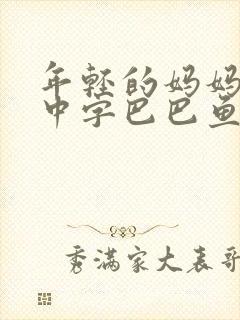 年轻的妈妈
中字巴巴鱼
秀满家大表哥